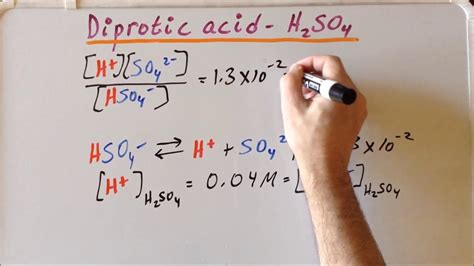 Diprotic acid - H₂SO₄
[H⁺][SO₄²⁻]
[HSO₄⁻] = 1.3 × 10⁻²
HSO₄⁻ ⇌ H⁺ + SO₄² 3 × 10⁻²
[H⁺]H₂SO₄ = 0.04M = [ ]H₂SO₄